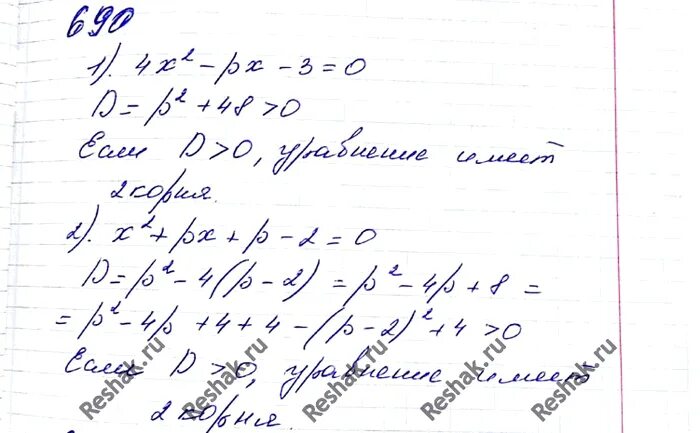 690
1). 4x² - px - 3 = 0
D = p² + 48 > 0
Если D > 0, уравнение имеет
2 корня.
2). x² + px + p - 2 = 0
D = p² - 4(p - 2) = p² - 4p + 8 =
= p² - 4p + 4 + 4 - (p - 2)² + 4 > 0
Если D > 0, уравнение имеет
2 корня.
Reshak.ru
Reshak.ru
Reshak.ru
Reshak.ru